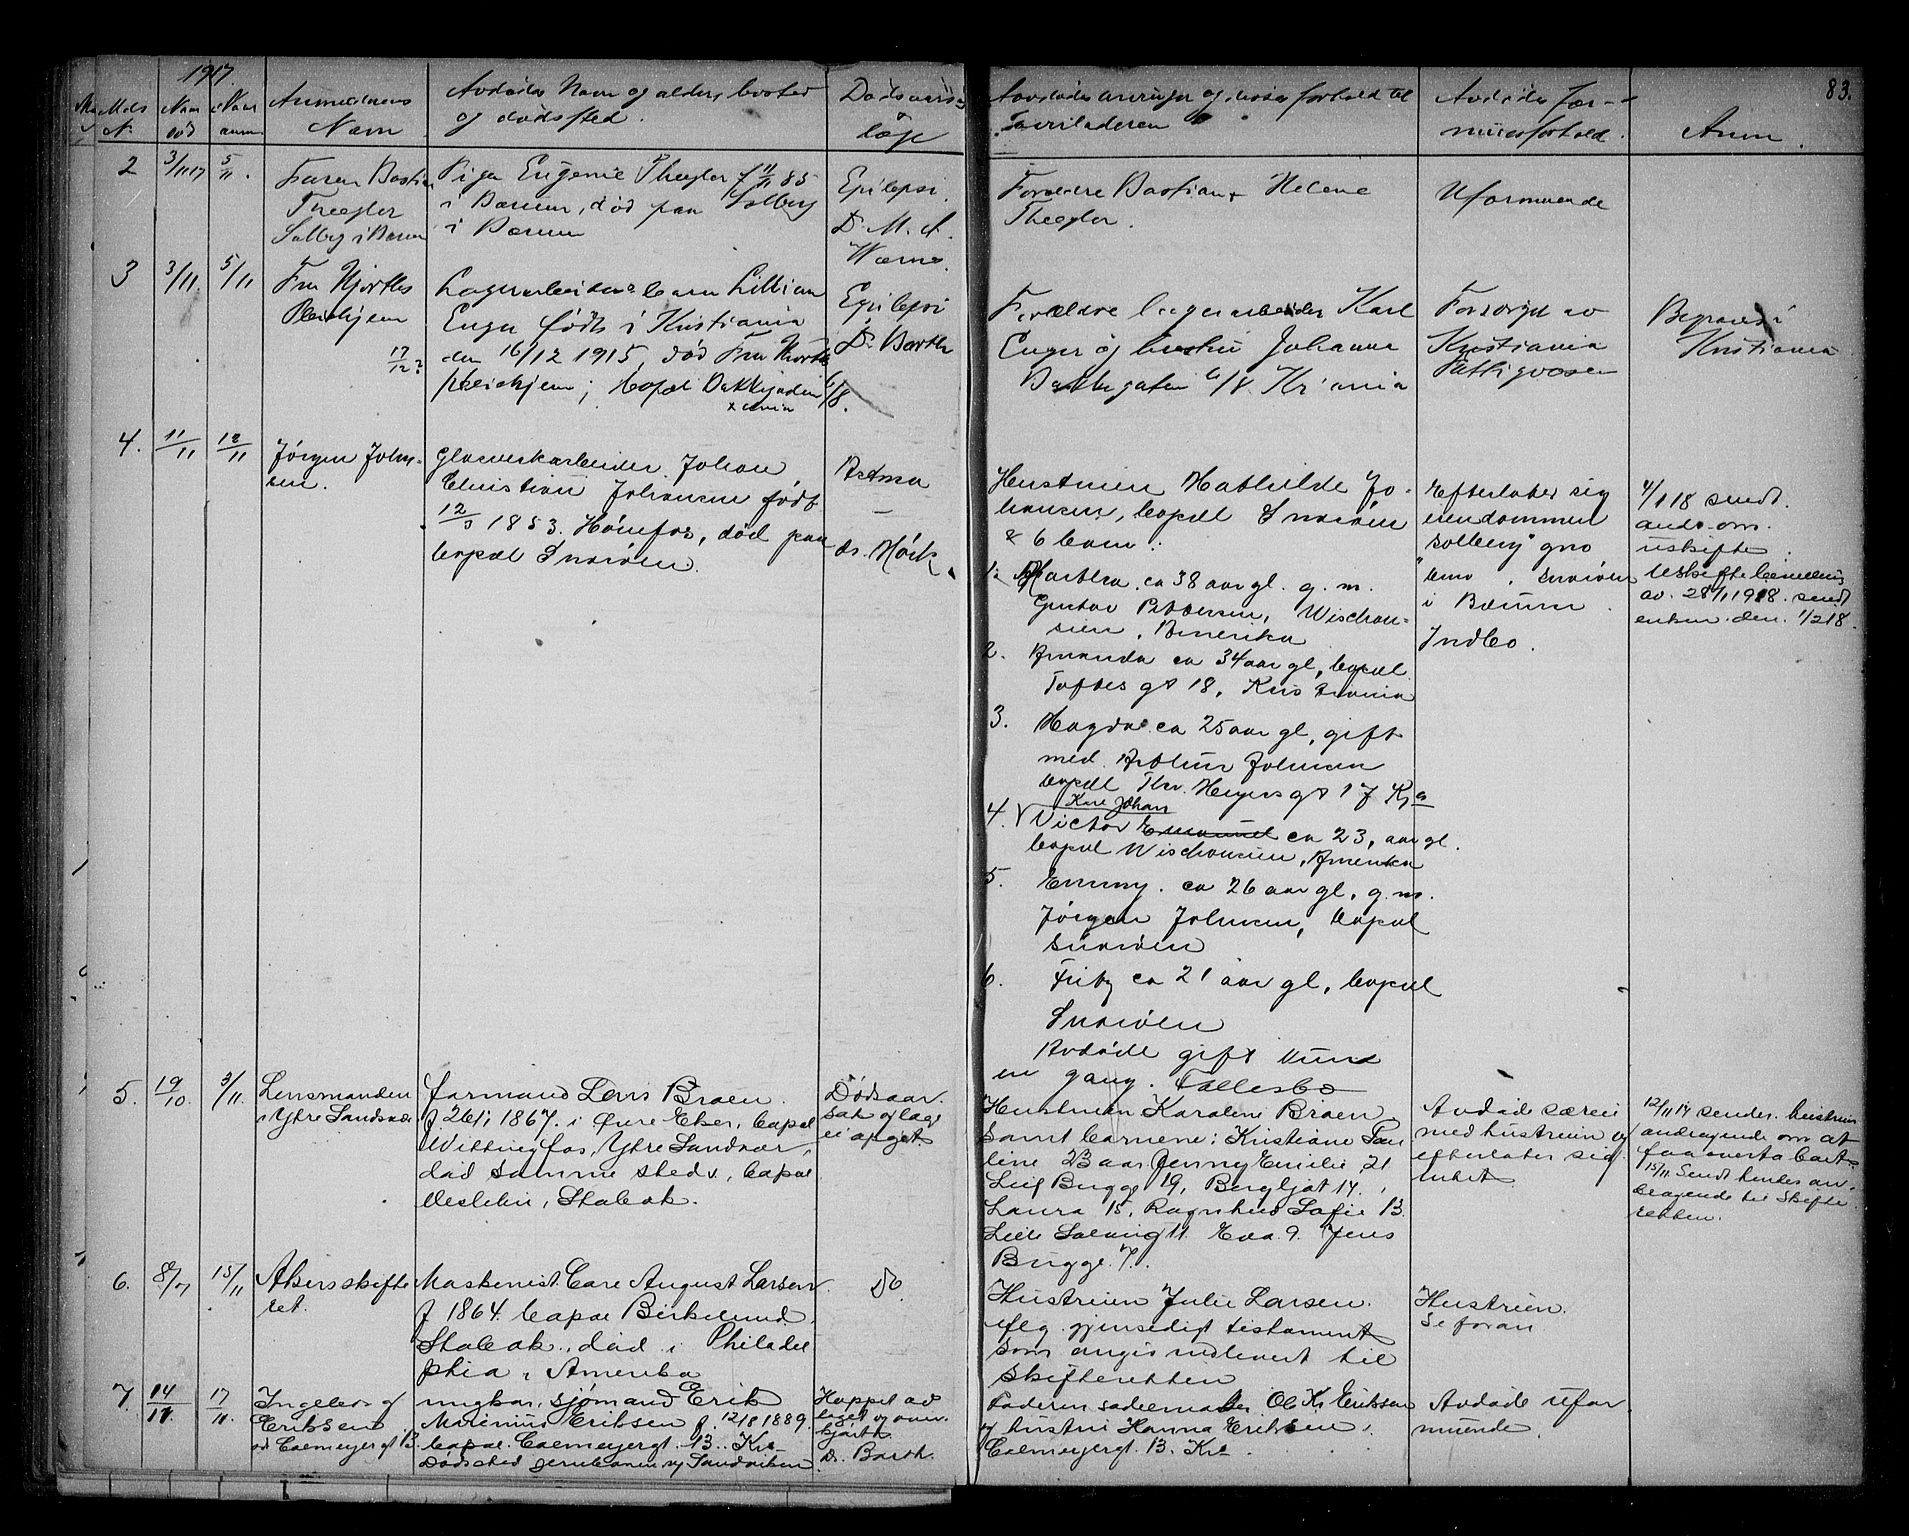 1917.
83.
Meld. N.
Naar død
Naar anm.
Anmelderens Navn
Avdødes Navn og alder, bosted
og dødssted.
Dødsaarsag
læge
Avdødes arvinger og disses forhold til
Avdødes For-
muesforhold.
Anm.
2
3/11 17
5/11.
Faren Bastian
Theegler
Solberg i Bærum
Pige Eugenie Theegler f 11/11 85
i Bærum, død paa Solberg
i Bærum
Epilepsi.
Dr. M. d.
Forældre Bastian + Helene
Theegler.
Uformuende
3
3/11.
5/11
Fru Hjorths
Pleiehjem
17/12?
Lagerarbeider barn Lillian
Enger født i Kristiania
den 16/12 1915, død Fru Hjorths
pleiehjem; bopæl Dakkegaden 6/8.
Xania
Epilepsi
Dr. Barth
Forældre lagerarbeider Karl
Enger og hustru Johanna
Dakkegaten 6/8. Kr'ania
Forsørget av
Kristiania
Fattigvæsen
Begraves i
Kristiania
4.
11/11
12/11
Jörgen John-
sen.
Glasverkarbeider Johan
Christian Johansen født
12/3 1853. Hönefos, död paa
bopæl Snaröen.
Astma
—
dr. Hörk.
Hustruen Mathilde Jo-
hansen, bopæl Snaröen
& 6 barn:
1. Martha. ca 38 aar gl. g. m.
Gustav Pettersen, Wischon-
sien, Amerika
2. Amanda ca 34 aar gl, bopæl
Toftes gt 18, Kristiania
3. Magda ca 25 aar gl, gift
med Arthur Johnsen
bopæl Thv. Meyers gt 17 Kra
Karl Johan
4. Victor Emanuel ca 23, aar gl.
bopæl Wischonsien, Amerika
5. Emmy. ca 26 aar gl, g. m.
Jörgen Johnsen, bopæl
Snaröen
6. Fritz ca 21 aar gl, bopæl
Snaröen
Avdöde gift kun
en gang. Fællesbo
Efterlater sig
eiendommen
"Solberg" gno
bno , Snaröen
i Bærum.
Indbo.
4/1 18 sendt
ands. om
uskifte.
Uskiftebevilling
av 28/1 1918. sendt
enken den 1/2 18.
5.
19/10.
3/11.
Lensmanden
i Ytre Sandsvær
formand Lars Braen.
f 26/1 1867. i Øvre Eker, bopæl
Wittingfos, Ytre Sandsvær,
död samme sted, bopæl
Vesleliv, Stabæk.
Dødsaar.
sak og læge
ei opget.
Hustruen Karoline Braen
samt barnene: Kristiane Pau
line 23 aar, Jenny Emilie 21
Leif Bugge 19, Bergljot 17.
Laura 15, Ragnhild Sofie 13.
Lille Solveig 11. Eva 9. Jens
Bugge 7.
Avdøde særeie
med hustruen og
efterlater sig
intet
12/11 17 sender hustruen
andragende om at
faa overta boet.
15/11 Sendt hendes an-
dragende til Skifte
retten.
6.
8/7
15/11
Akers skifte
ret.
Maskinist Carl August Larsen
f 1864. bopæl Birkelund,
Stabæk, død i Philadel
phia i Amerika
Do.
Hustruen Julie Larsen.
iflg. gjensidigt testament
som angis indlevert til
skifteretten
Hustruen.
Se foran
7.
14/11.
17/11.
Ingeborg
Eriksen
ad Calmeyergt 13.
ungkar, sjömand Erik
Marinius Eriksen f. 12/8 1889.
bopæl. Calmeyergt. 13. Kra
Dødssted jernbanen ny Sandviken
Hoppet av
toget og om.
Dr. Barth.
Faderen sadelmaker Ole Kr. Eriksen
og hustru Hanna Eriksen,
Calmeyergt. 13. Kra.
Avdøde ufor
muende.